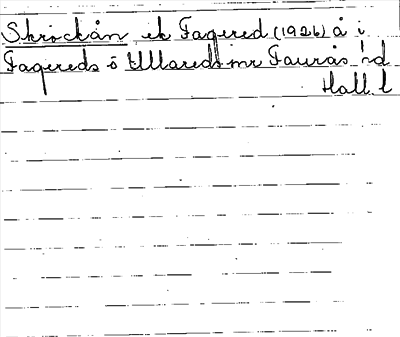 Skrockån ek Fagered (1926) å i
Fagereds o Ullareds snr Faurås hd
Hall. l